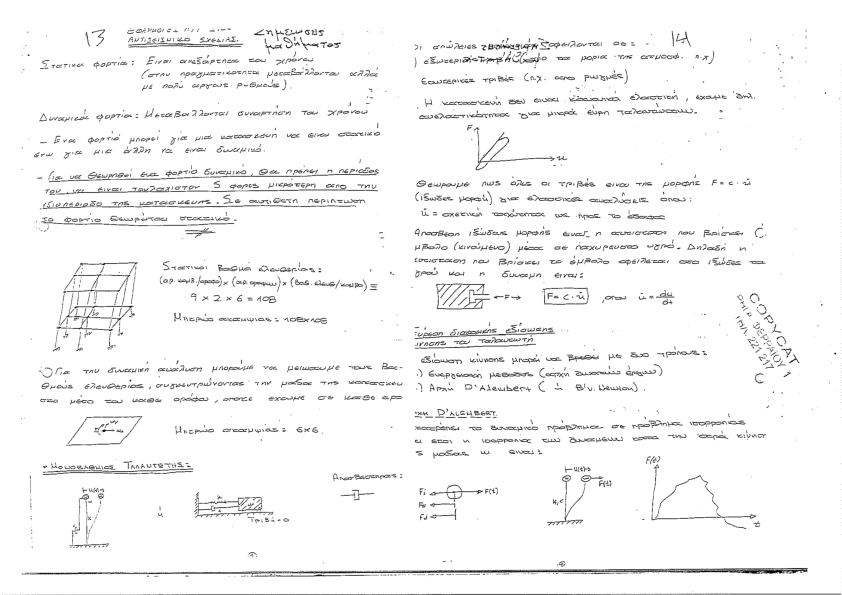 13
ΑΝΤΙΣΕΙΣΜΙΚΟ ΣΧΕΔΙΑΣ.
Σημειωσεις
μαθήματος
Στατικα φορτία: Ειναι ανεξάρτητα του χρόνου
(στην πραγματικοτητα μεταβάλλονται αλλα
με πολυ αργους ρυθμους).
Δυναμικά φορτία: Μεταβαλλονται συναρτήσει του χρόνου
- Ενα φορτιο μπορεί για μια κατασκευή να ειναι στατικό
ενω για μια άλλη να ειναι δυναμικό.
- Για να θεωρηθεί ένα φορτίο δυναμικό, θα πρέπει η περίοδος
του να ειναι τουλάχιστον 5 φορες μικρότερη απο την
ιδιοπερίοδο της κατασκευης. Σε αντιθετη περιπτωση
το φορτιο θεωρείται στατικό.
Στατικοι βαθμοι ελευθερίας:
(αρ. κομβ./οροφο) x (αρ. οροφων) x (βαθ. ελευθ/κομβο) =
9 x 2 x 6 = 108
Μητρώο στιβαρότητας: 108x108
Για την δυναμική ανάλυση μπορουμε να μειωσουμε τους Βα-
θμούς ελευθερίας, συγκεντρώνοντας την μαζα της κατασκευ
στο μέσο του καθε ορόφου, οποτε εχουμε σε καθε ορο
6x6.
• ΜΟΝΟΒΑΘΜΙΟΣ ΤΑΛΑΝΤΩΤΗΣ:
Αποσβεστηρας:
u(t)
ή
Τριβή=0
14
Οι απώλειες οφείλονται σε:
εξωτερικη τριβη (με τα μορια της ατμοσφ. π.χ)
Εσωτερικες τριβές (π.χ. απο ρωγμές)
Η κατασκευή δεν ειναι ελαστική, εχουμε δηλ.
ανελαστικότητα για μικρά εύρη ταλαντώσεων.
F
u
Θεωρουμε πως όλες οι τριβές ειναι της μορφής F = c · u̇
(ιξώδες μορφή) για ελαστικες αναλύσεις όπου:
u̇ = σχετική ταχύτητα ως προς το έδαφος
Αποσβεση ιξώδους μορφής ειναι η αντισταση που βρίσκει
μβολο (κινούμενο) μέσα σε παχυρευστο υγρό. Δηλαδή η
αντισταση που βρίσκει το έμβολο οφείλεται στο ιξώδες το
γρού και η δυναμη ειναι:
F
F = c · u̇
, οπου u̇ = du/dt
COPYCAT
ΤΗΛ. 221 217
Εύρεση διαφορικής εξίσωσης
κινησης του ταλαντωτή
εξίσωση κίνησης μπορεί να βρεθει με δυο τρόπους:
.) Ενεργειακή μεθοδος (αρχή δυνατων έργων)
.) Αρχή D'Alembert ( ή Β'ν. Newton).
ΑΡΧΗ D'ALEMBERT
μετατρέπει το δυναμικο πρόβλημα σε πρόβλημα ισορροπίας
ι ετσι η ισορροπια των δυναμεων κατα την τυχαία κίνησ
ς μαζας m ειναι:
Fi
F(t)
Fs
Fd
u(t)
F(t)
k, c
F(t)
t